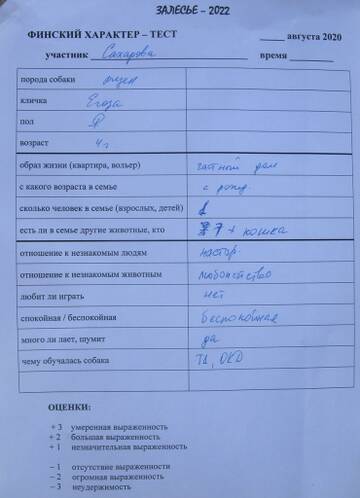 ЗАЛЕСЬЕ – 2022
ФИНСКИЙ ХАРАКТЕР – ТЕСТ ____ августа 2020
участник Сахарова время
порода собаки ризен
кличка Егоза
пол
возраст 4 г
образ жизни (квартира, вольер) частный дом
с какого возраста в семье с рожд.
сколько человек в семье (взрослых, детей) 1
есть ли в семье другие животные, кто 7 + кошка
отношение к незнакомым людям настор.
отношение к незнакомым животным любопытство
любит ли играть нет
спокойная / беспокойная беспокойная
много ли лает, шумит да
чему обучалась собака Т1, ОКД
ОЦЕНКИ:
+ 3 умеренная выраженность
+ 2 большая выраженность
+ 1 незначительная выраженность
– 1 отсутствие выраженности
– 2 огромная выраженность
– 3 неудержимость